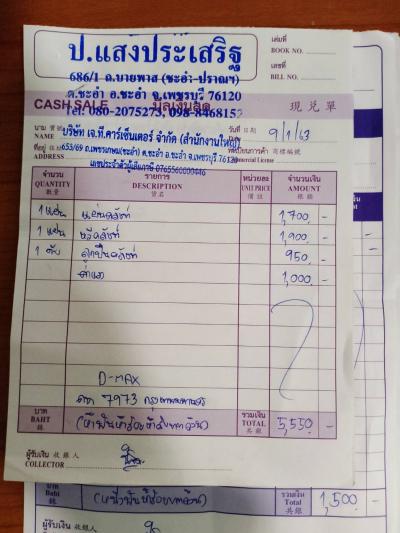 ป.แสงประเสริฐ
686/1 ถ.บายพาส (ชะอำ-ปราณฯ)
ต.ชะอำ อ.ชะอำ จ.เพชรบุรี 76120
โทร 080-2075273, 098-8468152
เล่มที่
BOOK NO.
เลขที่
BILL NO.
CASH SALE บิลเงินสด 現兌單
นาม
NAME
บริษัท เจ.ที.คาร์เซ็นเตอร์ จำกัด (สำนักงานใหญ่)
วันที่ 日期 9/1/63
ที่อยู่
ADDRESS
653/69 ถ.เพชรเกษม(ชะอำ) ต.ชะอำ อ.ชะอำ จ.เพชรบุรี 76120
ทะเบียนการค้า 商標編號
Commercial License
เลขประจำตัวผู้เสียภาษี 0765560000446
จำนวน รายการ หน่วยละ จำนวนเงิน
QUANTITY DESCRIPTION UNIT PRICE AMOUNT
數量 貨名 價註 銀額
1 แผ่น แผ่นคลัทช์ 1,700 -
1 แผ่น หวีคลัทช์ 1,900 -
1 ตับ ลูกปืนคลัทช์ 950 -
ค่าแรง 1,000 -
D-MAX
7973 กรุงเทพมหานคร
บาท
BAHT
銖
(ห้าพันห้าร้อยห้าสิบบาทถ้วน)
รวมเงิน
TOTAL
共銀
5,550 -
ผู้รับเงิน 收銀人
COLLECTOR
บาท
Baht
銖
(หนึ่งพันห้าร้อยบาทถ้วน)
รวมเงิน
Total
共銀
1,500 -
ผู้รับเงิน 收銀人